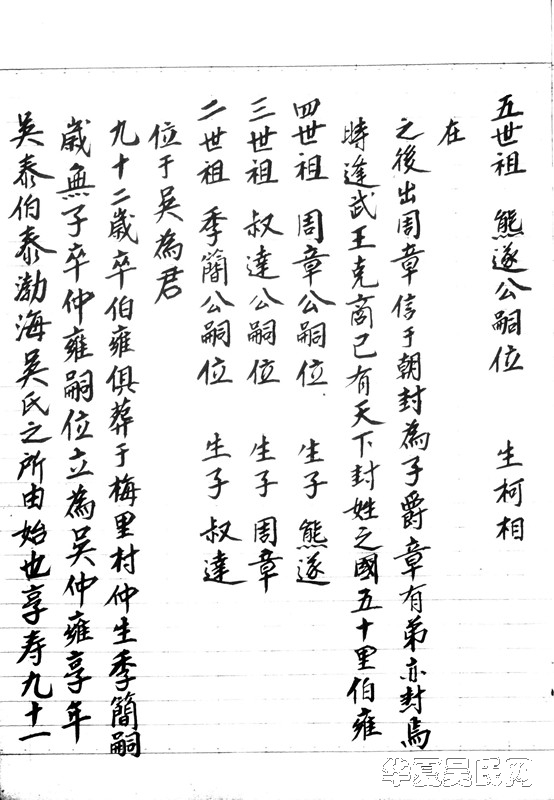 吳泰伯泰渤海吳氏之所由始也享寿九十一
歲無子卒仲雍嗣位立為吳仲雍享年
九十二歲卒伯雍俱葬于梅里村仲生季簡嗣
位于吳為君
二世祖 季簡公嗣位 生子 叔達
三世祖 叔達公嗣位 生子 周章
四世祖 周章公嗣位 生子 熊遂
時逢武王克商已有天下封姓之國五十里伯雍
之後出周章信于朝封為子爵章有弟亦封焉
在
五世祖 熊遂公嗣位 生柯相
华夏吴氏网